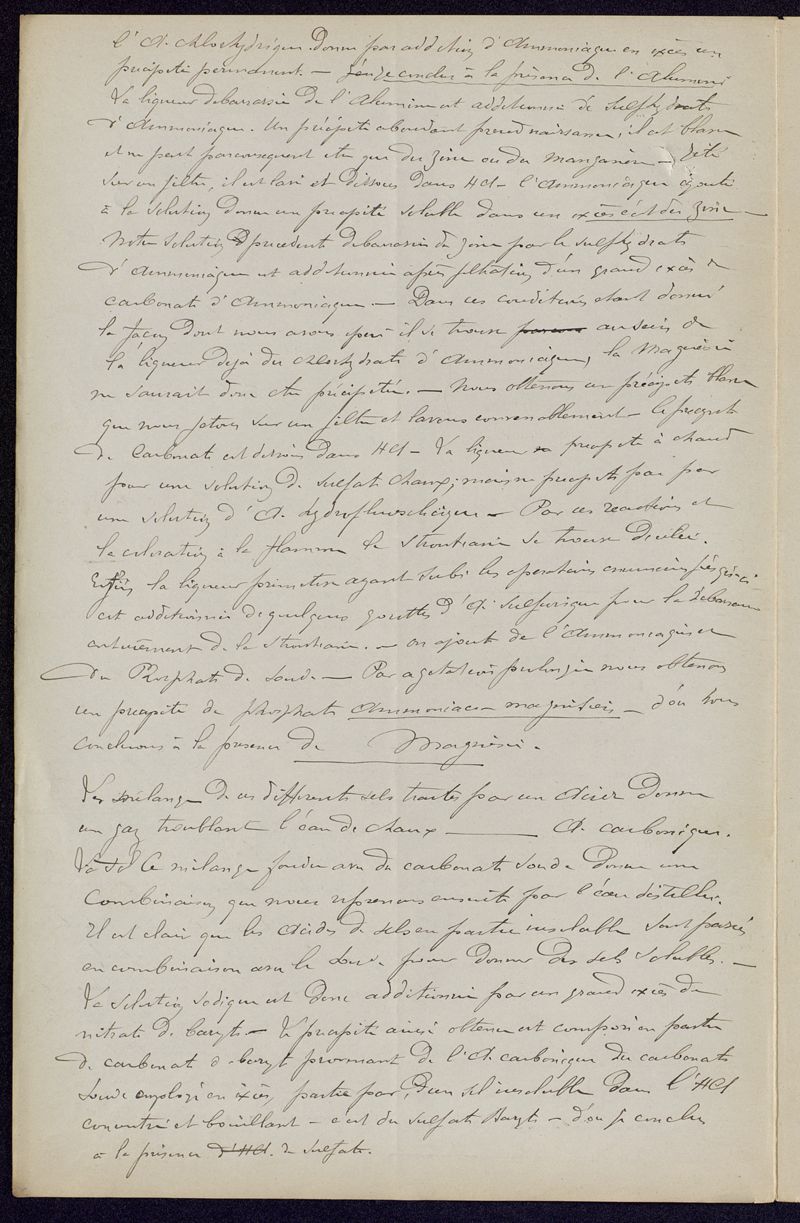 l'A. chlorhydrique donne par addition d'Ammoniaque en excès un
précipité permanent. — j'en conclus à la présence de l'Alumine
La liqueur débarassée de l'Alumine est additionnée de sulfhydrate
d'Ammoniaque. Un précipité abondant prend naissance, il est blanc
et ne peut par conséquent être que du zinc ou du manganèse — Jeté
sur un filtre, il est lavé et dissous dans HCl — l'Ammoniaque ajouté
à la solution donne un précipité soluble dans un excès c'est du zinc —
Notre solution précédente débarassée du zinc par le sulfhydrate
d'Ammoniaque est additionnée après filtration d'un grand excès de
carbonate d'Ammoniaque. — Dans ces conditions étant donné
la façon dont nous avons opéré il se trouve au sein de
la liqueur déjà du chlorhydrate d'Ammoniaque, la Magnésie
ne saurait donc être précipitée. — Nous obtenons un précipité blanc
que nous jetons sur un filtre et lavons convenablement — le précipité
de Carbonate est dissous dans HCl — La liqueur précipite à chaud
par une solution de sulfate chaux; mais ne précipite pas par
une solution d'A. hydrofluosilicique — Par ces réactions et
la coloration à la flamme la Strontiane se trouve décelée.
Enfin la liqueur primitive ayant subi les opérations énumérées
est additionnée de quelques gouttes d'A. sulfurique pour la débarasser
entièrement de la Strontiane. — on ajoute de l'Ammoniaque et
du Phosphate de soude — Par agitation prolongée nous obtenons
un précipité de phosphate Ammoniaco-magnésien — d'où nous
concluons à la présence de Magnésie.
Le mélange de ces différents sels traités par un Acide donne
un gaz troublant l'eau de chaux ——— A. carbonique.
Le mélange fondu avec du carbonate soude donne une
Combinaison que nous reprenons ensuite par l'eau distillée.
Il est clair que les Acides de sels en partie insoluble sont passés
en combinaison avec la soude pour donner des sels solubles. —
La solution sodique est donc additionnée par un grand excès de
nitrate de baryte — Le précipité ainsi obtenu est composé en partie
de carbonate de baryte provenant de l'A. carbonique du carbonate
soude employé en excès, partie par d'un sel insoluble dans l'HCl
concentré et bouillant — c'est du sulfate Baryte — d'où je conclus
à la présence d'HCl. de sulfate.